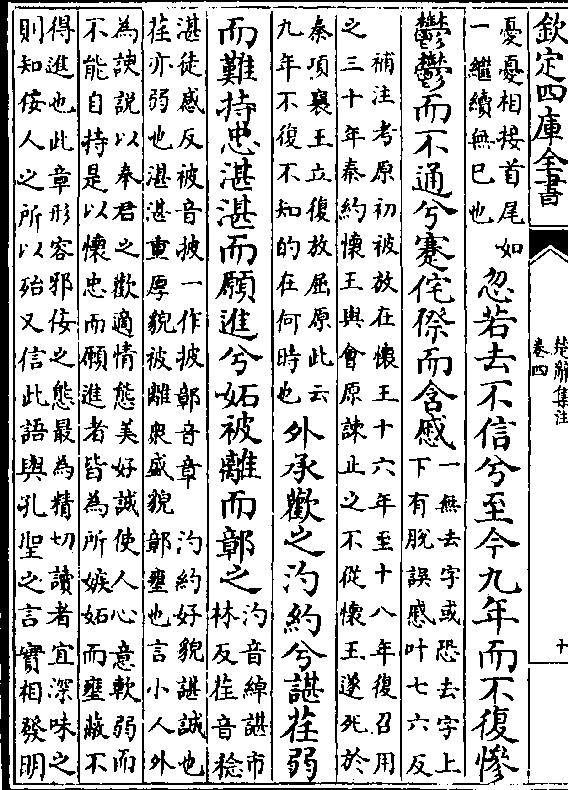 欽定四庫全書
楚辭集注
卷四
十
憂憂相接首尾如
一繼續無已也
忽若去不信兮至今九年而不復慘
鬱鬱而不通兮蹇侘傺而含慼
一無去字或恐去字上
下有脫誤慼叶七六反
補注考原初被放在懷王十六年至十八年復召用
之三十年秦約懷王與會原諫止之不從懷王遂死於
秦項襄王立復放屈原此云
九年不復不知的在何時也
外承歡之汋約兮諶荏弱
而難持忠湛湛而願進兮妬被離而鄣之
汋音綽諶市
林反荏音稔
湛徒感反被音披一作披鄣音章 汋約好貌諶誠也
荏亦弱也湛湛重厚貌被離衆盛貌鄣壅也言小人外
為諛說以奉君之歡適情態美好誠使人心意軟弱而
不能自持是以懷忠而願進者皆為所嫉妬而壅蔽不
得進也此章形容邪佞之態最為精切讀者宜深味之
則知佞人之所以殆又信此語與孔聖之言實相發明